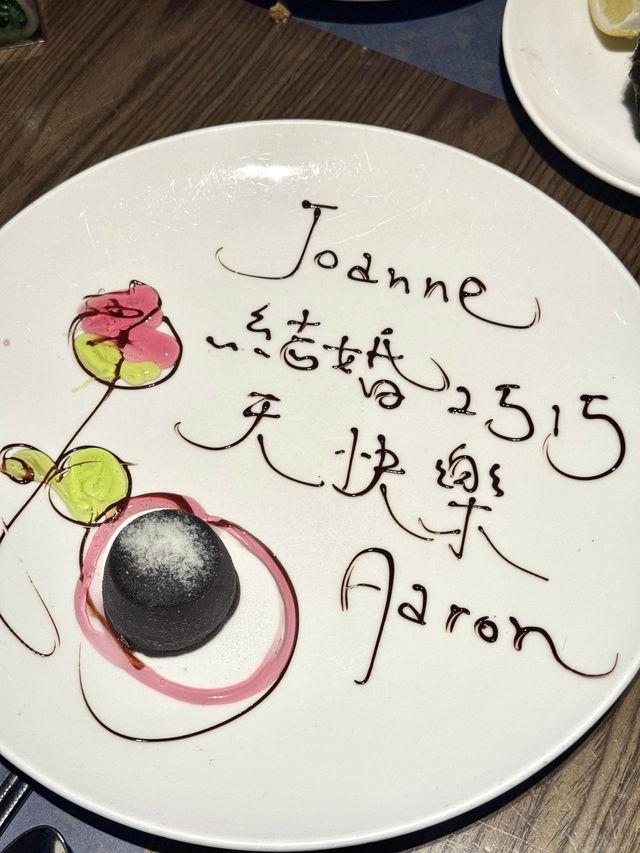 Joanne
結婚2515
天快樂
Aaron